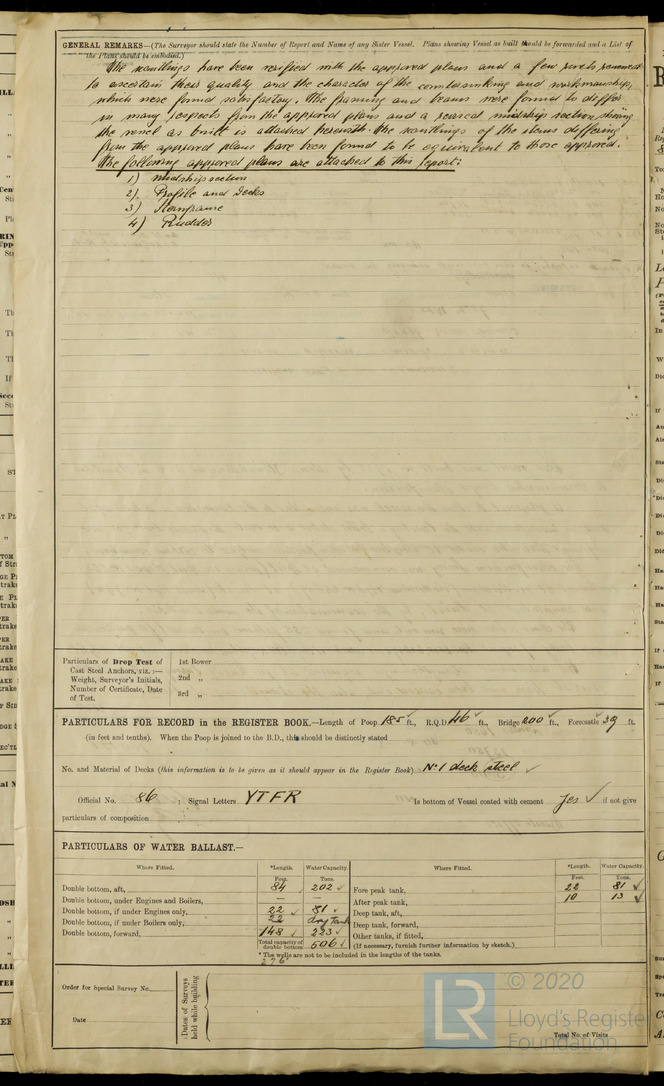 GENERAL REMARKS—(The Surveyor should state the Number of Report and Name of any Sister Vessel. Plans showing Vessel as built should be forwarded and a List of
the Plans should be embodied.)
The scantlings have been verified with the approved plans and a few rivets removed
to ascertain their quality and the character of the countersinking and workmanship,
which were found satisfactory. The framing and beams were found to differ
in many respects from the approved plans and a revised midship section showing
the vessel as built is attached herewith. The scantlings of the items differing
from the approved plans have been found to be equivalent to those approved.
The following approved plans are attached to this report:
1) Midship section
2) Profile and Decks
3) Sternframe
4) Rudder
Particulars of Drop Test of
Cast Steel Anchors, viz.:—
Weight, Surveyor's Initials,
Number of Certificate, Date
of Test.
1st Bower
2nd „
3rd „
PARTICULARS FOR RECORD in the REGISTER BOOK.—Length of Poop 185 ft., R.Q.D. 46 ft., Bridge 200 ft., Forecastle 39 ft.
(in feet and tenths). When the Poop is joined to the B.D., this should be distinctly stated
No. and Material of Decks (this information is to be given as it should appear in the Register Book) No 1 deck steel
Official No. 86 ; Signal Letters YTFR Is bottom of Vessel coated with cement Yes if not give
particulars of composition
PARTICULARS OF WATER BALLAST.—
Where Fitted. *Length. Water Capacity. Where Fitted. *Length. Water Capacity.
Feet. Tons. Feet. Tons.
Double bottom, aft, 84 202 Fore peak tank, 22 81
Double bottom, under Engines and Boilers, — — After peak tank, 10 13
Double bottom, if under Engines only, 22 81 Deep tank, aft,
Double bottom, if under Boilers only, 22 dry tank Deep tank, forward,
Double bottom, forward, 148 223 Other tanks, if fitted,
Total capacity of double bottom 506 (If necessary, furnish further information by sketch.)
* The wells are not to be included in the lengths of the tanks.
276
Order for Special Survey No.
Date
Dates of Surveys
held while building
Total No. of Visits
LR
© 2020
Lloyd's Register
Foundation